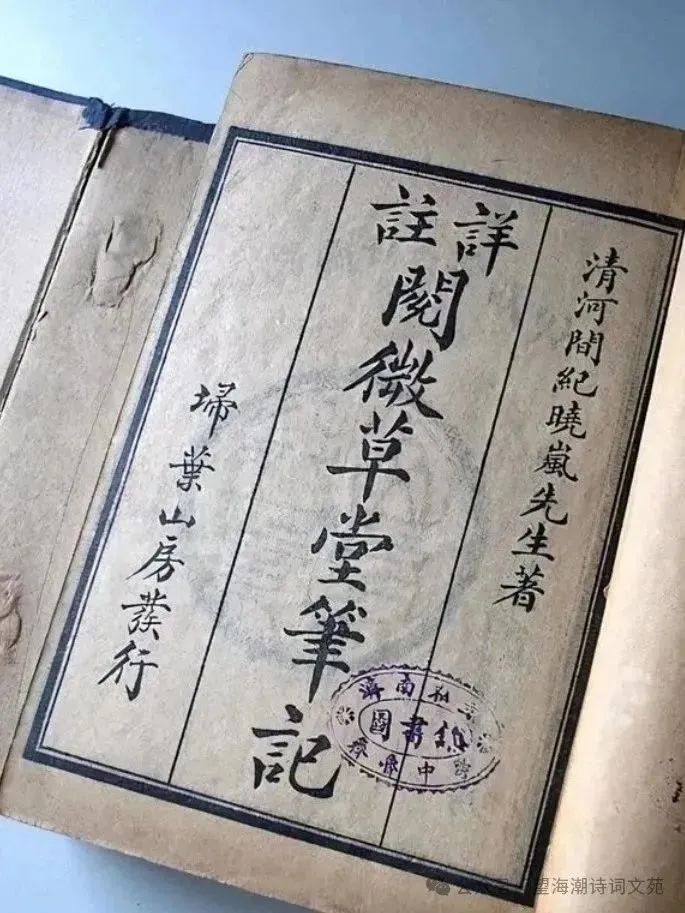 清河間紀曉嵐先生著
詳註
閱微草堂筆記
埽葉山房發行
濟南
圖書
中
望海潮诗词文苑